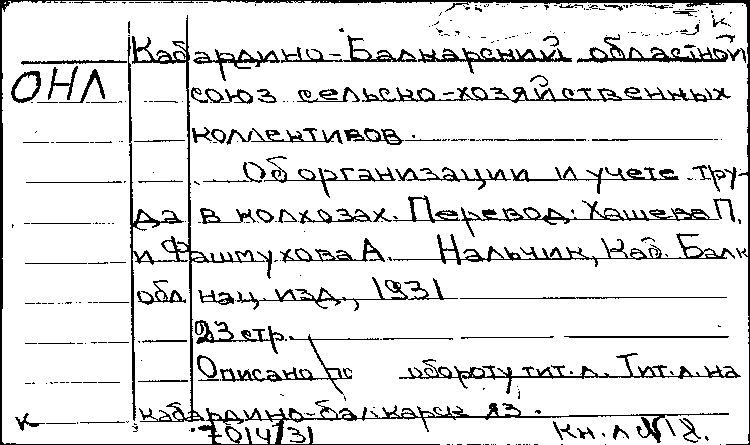 к
Кабардино-Балкарский областной
ОНЛ
союз сельско-хозяйственных
коллективов.
Об организации и учете тру-
да в колхозах. Перевод: Хашева П.
и Фашмухова А. Нальчик, Каб. Балк
обл. нац. изд., 1931
23 стр.
Описано по обороту тит. л. Тит. л. на
к кабардино-балкарск яз.
7014/31 Кн. л № 18.